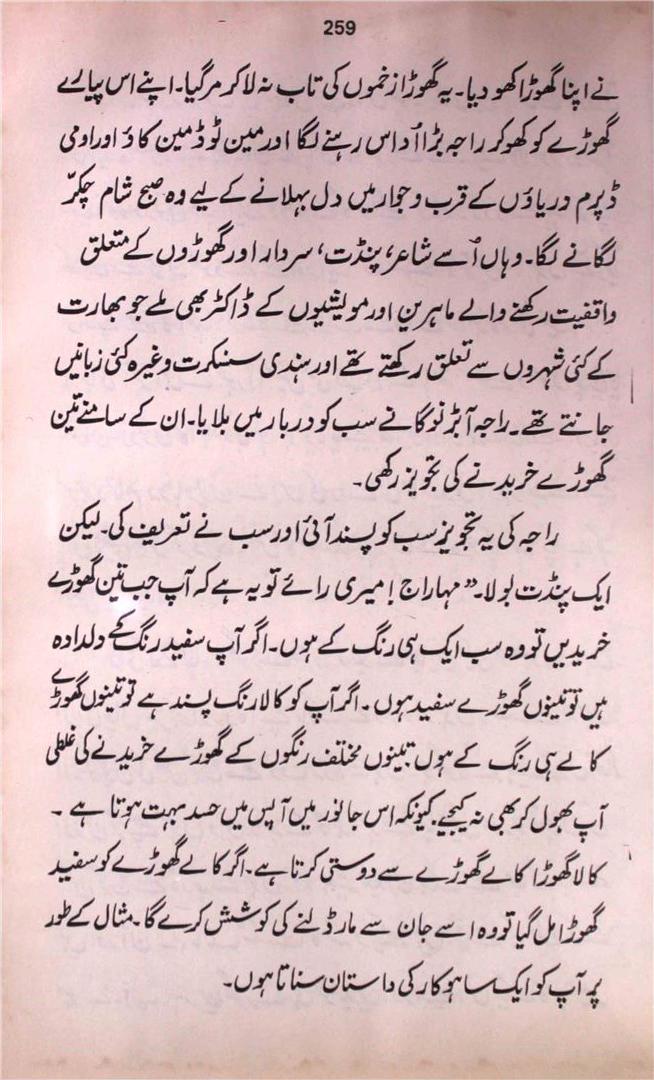 259
نے اپنا گھوڑا کھو دیا۔ یہ گھوڑا زخموں کی تاب نہ لا کر مر گیا۔ اپنے اس پیارے
گھوڑے کو کھو کر راجہ بڑا اُداس رہنے لگا اور مین ٹوڈ مین کاؤ اور اومی
ڈپرم دریاؤں کے قرب وجوار میں دل بہلانے کے لیے وہ صبح شام چکّر
لگانے لگا۔ وہاں اُسے شاعر، پنڈت، سردار اور گھوڑوں کے متعلق
واقفیت رکھنے والے ماہرین اور مویشیوں کے ڈاکٹر بھی ملے جو بھارت
کے کئی شہروں سے تعلق رکھتے تھے اور ہندی سنسکرت وغیرہ کئی زبانیں
جانتے تھے۔ راجہ آبڑنوگا نے سب کو دربار میں بلایا۔ ان کے سامنے تین
گھوڑے خریدنے کی تجویز رکھی۔
راجہ کی یہ تجویز سب کو پسند آئی اور سب نے تعریف کی۔ لیکن
ایک پنڈت بولا۔ ”مہاراج! میری رائے تو یہ ہے کہ آپ جب تین گھوڑے
خریدیں تو وہ سب ایک ہی رنگ کے ہوں۔ اگر آپ سفید رنگ کے دلدادہ
ہیں تو تینوں گھوڑے سفید ہوں۔ اگر آپ کو کالا رنگ پسند ہے تو تینوں گھوڑے
کالے ہی رنگ کے ہوں تینوں مختلف رنگوں کے گھوڑے خریدنے کی غلطی
آپ بھول کر بھی نہ کیجیے۔ کیونکہ اس جانور میں آپس میں حسد بہت ہوتا ہے۔
کالا گھوڑا کالے گھوڑے سے دوستی کرتا ہے۔ اگر کالے گھوڑے کو سفید
گھوڑا مل گیا تو وہ اسے جان سے مار ڈالنے کی کوشش کرے گا۔ مثال کے طور
پر آپ کو ایک ساہوکار کی داستان سناتا ہوں۔